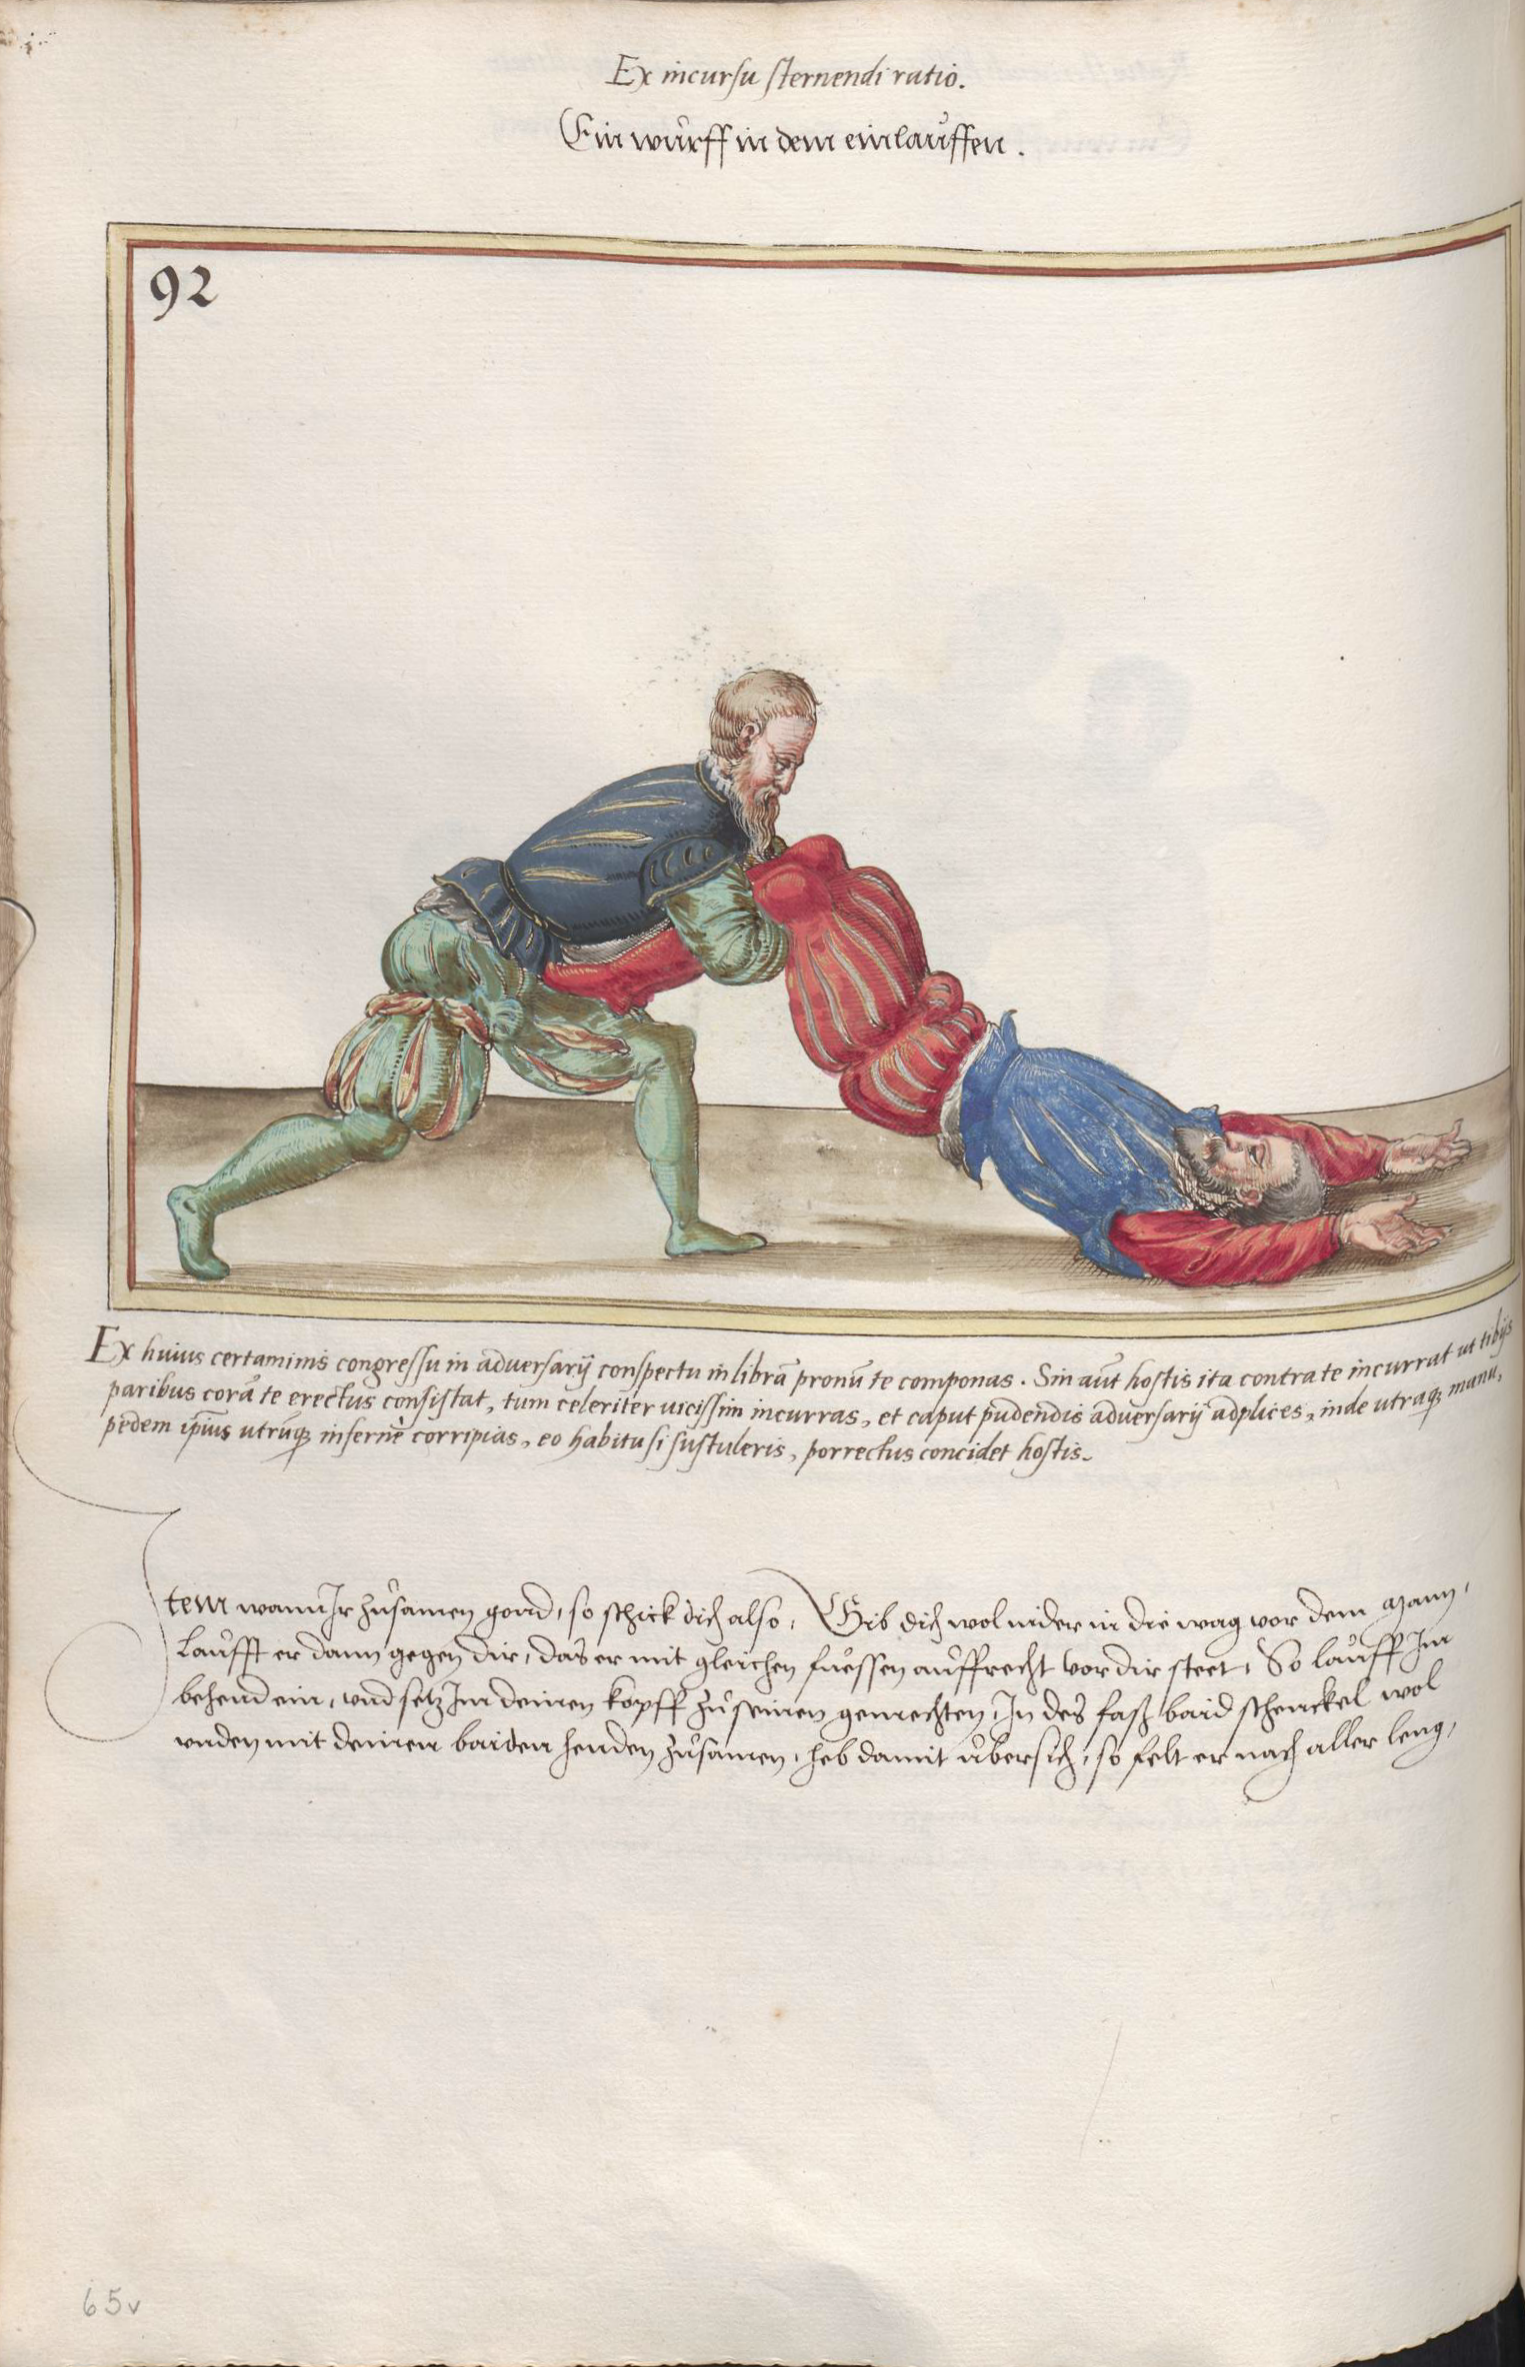 Ex incursu sternendi ratio.
Ein wůrff in dem einlauffen.
92
Ex huius certaminis congressu in adversarij conspectu in librã pronũ te componas. Sin aũt hostis ita contra te incurrat ut tibijs
paribus corã te erectus consistat, tum celeriter vicissim incurras, et caput pudendis adversarij adplices, inde utraq₃ manu,
pedem ip̃ius utrũq₃ infernè corripias, eo habitu si sustuleris, porrectus concidet hostis.
Item wann Ir zůsamen gond, so schick dich also, Gib dich wol nider in die wag vor dem Mann,
Laufft er dann gegen dir, das er mit gleichen fuessen auffrecht vor dir steet, So lauff Im
behend ein, und setz Im deinen kopff zů seinen gemechten, In des faß baid schenckel wol
unden mit deinen baiden henden zůsamen, heb damit übersich, so felt er nach aller leng,
65v